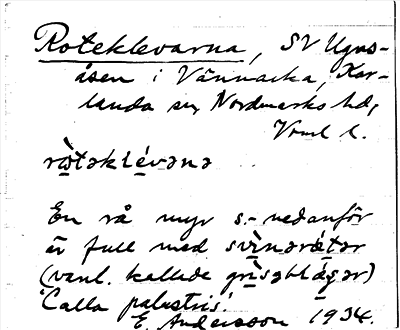 Roteklevarna, SV Ugns-
åsen i Vännacka, Kar-
landa sn, Nordmarks hd,
Vrml l.
rὼtəklévənə
En rå myr s.- nedanför
är full med svìnərǿtər
(vanl. kallade grìsəblágər)
'Calla palustris'.
E. Andersson 1934.